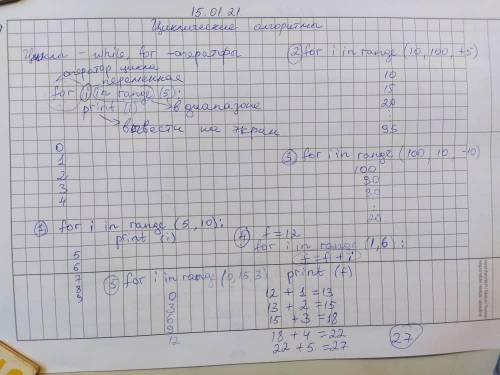 15.01.21
Циклические алгоритмы
Циклы - while, for - операторы
оператор цикла
переменная
for i in range (5):
print (i)
в диапазоне
вывести на экран
0
1
2
3
4
① for i in range (5, 10):
print (i)
5
6
7
8
9
② for i in range (10, 100, +5)
10
15
20
:
95
③ for i in range (100, 10, -10)
100
90
80
:
20
④ f = 12
for i in range (1, 6):
f = f + i
print (f)
12 + 1 = 13
13 + 2 = 15
15 + 3 = 18
18 + 4 = 22
22 + 5 = 27
27
⑤ for i in range (0, 15, 3)
0
3
6
9
12